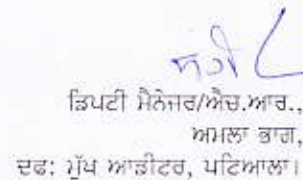 ਡਿਪਟੀ ਮੈਨੇਜਰ/ਐਚ.ਆਰ.,
ਅਮਲਾ ਭਾਗ,
ਦਫ: ਮੁੱਖ ਆਡੀਟਰ, ਪਟਿਆਲਾ।